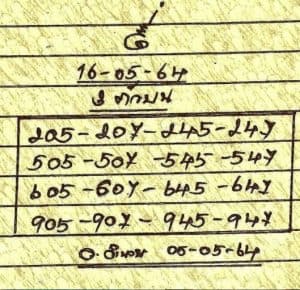 16-05-64
3 ตัวบน
205-207-245-247
505-507-545-547
605-607-645-647
905-907-945-947
06-05-64